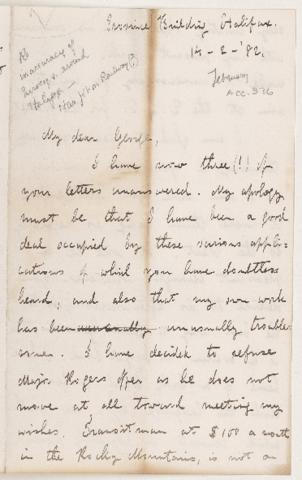 Province Building, Halifax.
14 - 2 - '82.
February
ACC. 576
Re
inaccuracy of
surveys around
Halifax
Railway (?)
My dear George,
I have now three (!) of
your letters unanswered. My apology
must be that I have been a good
deal occupied by these various appli-
cations of which you have doubtless
heard, and also that my own work
has been unusually unusually trouble-
some. I have decided to refuse
Major Rogers offer as he does not
move at all toward meeting my
wishes. Transitman at $100 a month
in the Rocky Mountains, is not an